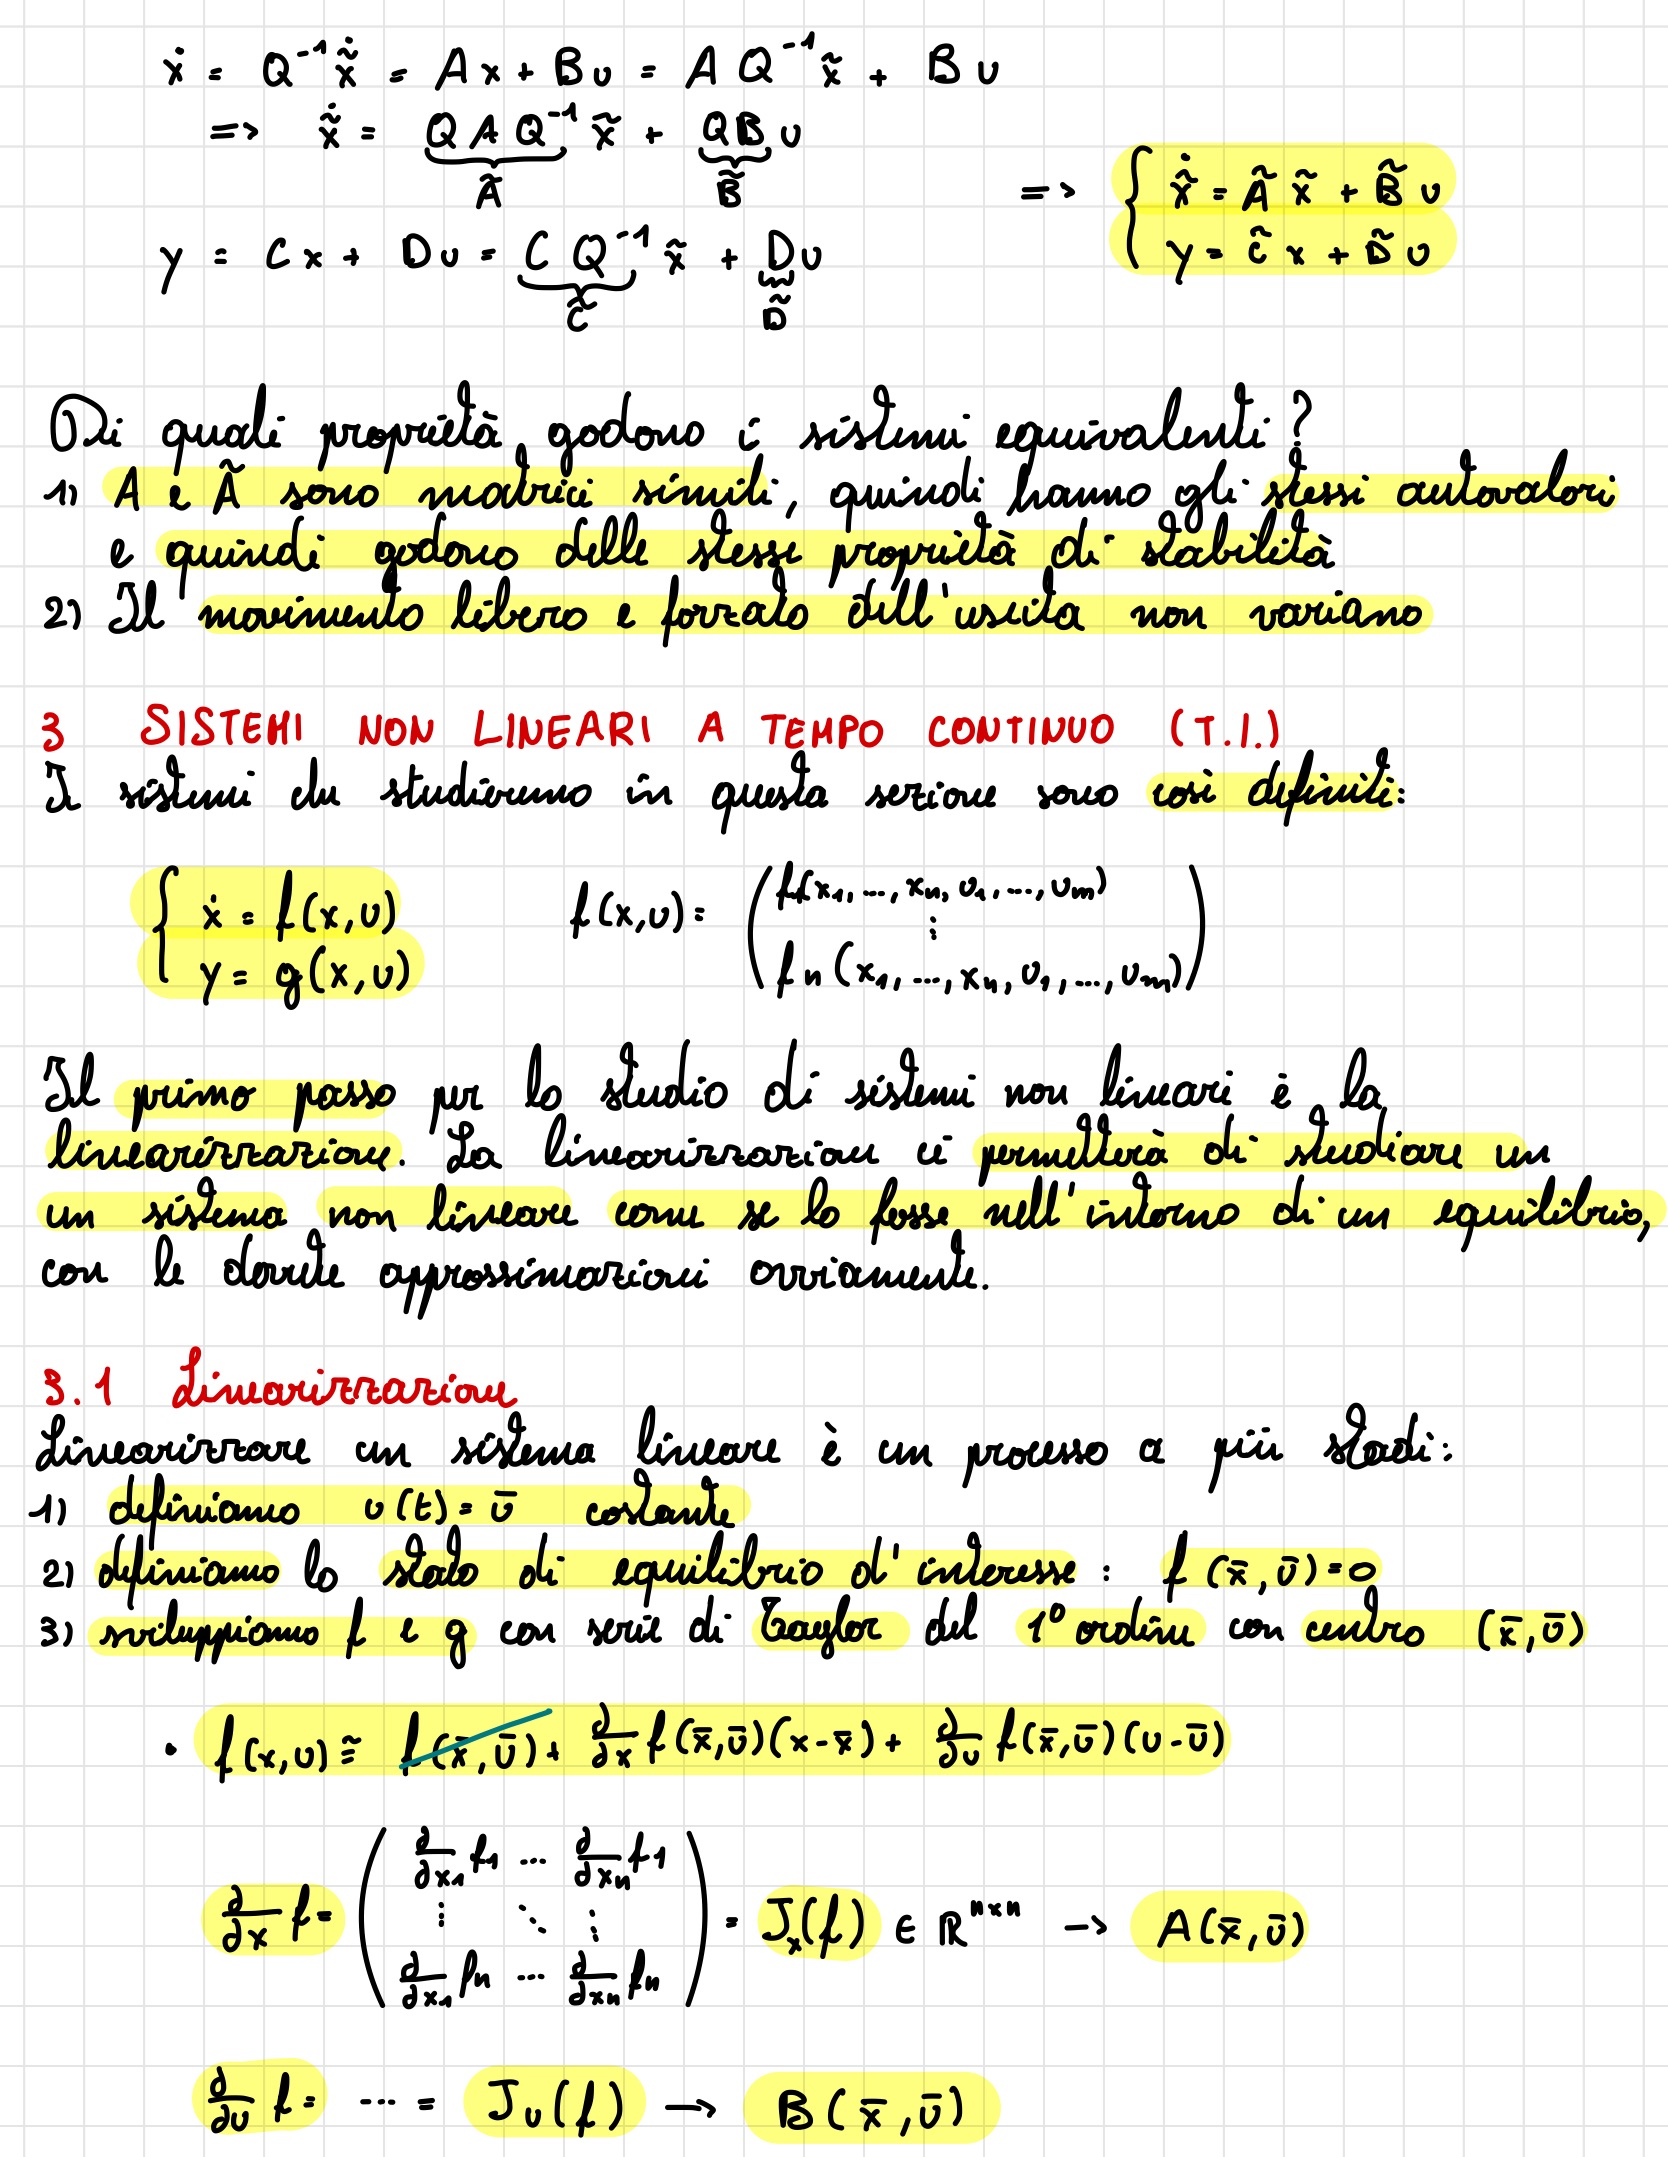 ẋ = Q⁻¹ x̃̇ = A x + B u = A Q⁻¹ x̃ + B u
=> x̃̇ = Q A Q⁻¹ x̃ + Q B u
Ã B̃
=> { x̃̇ = Ã x̃ + B̃ u
y = C̃ x + D̃ u
y = C x + D u = C Q⁻¹ x̃ + D u
C̃ D̃
Di quali proprietà godono i sistemi equivalenti?
1) A e Ã sono matrici simili, quindi hanno gli stessi autovalori
e quindi godono delle stesse proprietà di stabilità
2) Il movimento libero e forzato dell'uscita non variano
3 SISTEMI NON LINEARI A TEMPO CONTINUO (T.I.)
I sistemi che studieremo in questa sezione sono così definiti:
{ ẋ = f(x,u)
y = g(x,u)
f(x,u) = ( f1(x₁, ..., xₙ, u₁, ..., uₘ)
⋮
fn(x₁, ..., xₙ, u₁, ..., uₘ) )
Il primo passo per lo studio di sistemi non lineari è la
linearizzazione. La linearizzazione ci permetterà di studiare un
un sistema non lineare come se lo fosse nell'intorno di un equilibrio,
con le dovute approssimazioni ovviamente.
3.1 Linearizzazione
Linearizzare un sistema lineare è un processo a più stadi:
1) definiamo u(t) = ū costante
2) definiamo lo stato di equilibrio d'interesse : f(x̄,ū)=0
3) sviluppiamo f e g con serie di Taylor del 1° ordine con centro (x̄,ū)
• f(x,u) ≅ f(x̄,ū) + ∂/∂x f(x̄,ū)(x-x̄) + ∂/∂u f(x̄,ū)(u-ū)
∂/∂x f = ( ∂/∂x₁ f1 ... ∂/∂xₙ f1
⋮ ⋱ ⋮
∂/∂x₁ fn ... ∂/∂xₙ fn ) = Jₓ(f) ∈ ℝⁿˣⁿ -> A(x̄,ū)
∂/∂u f = ... = Jᵤ(f) -> B(x̄,ū)